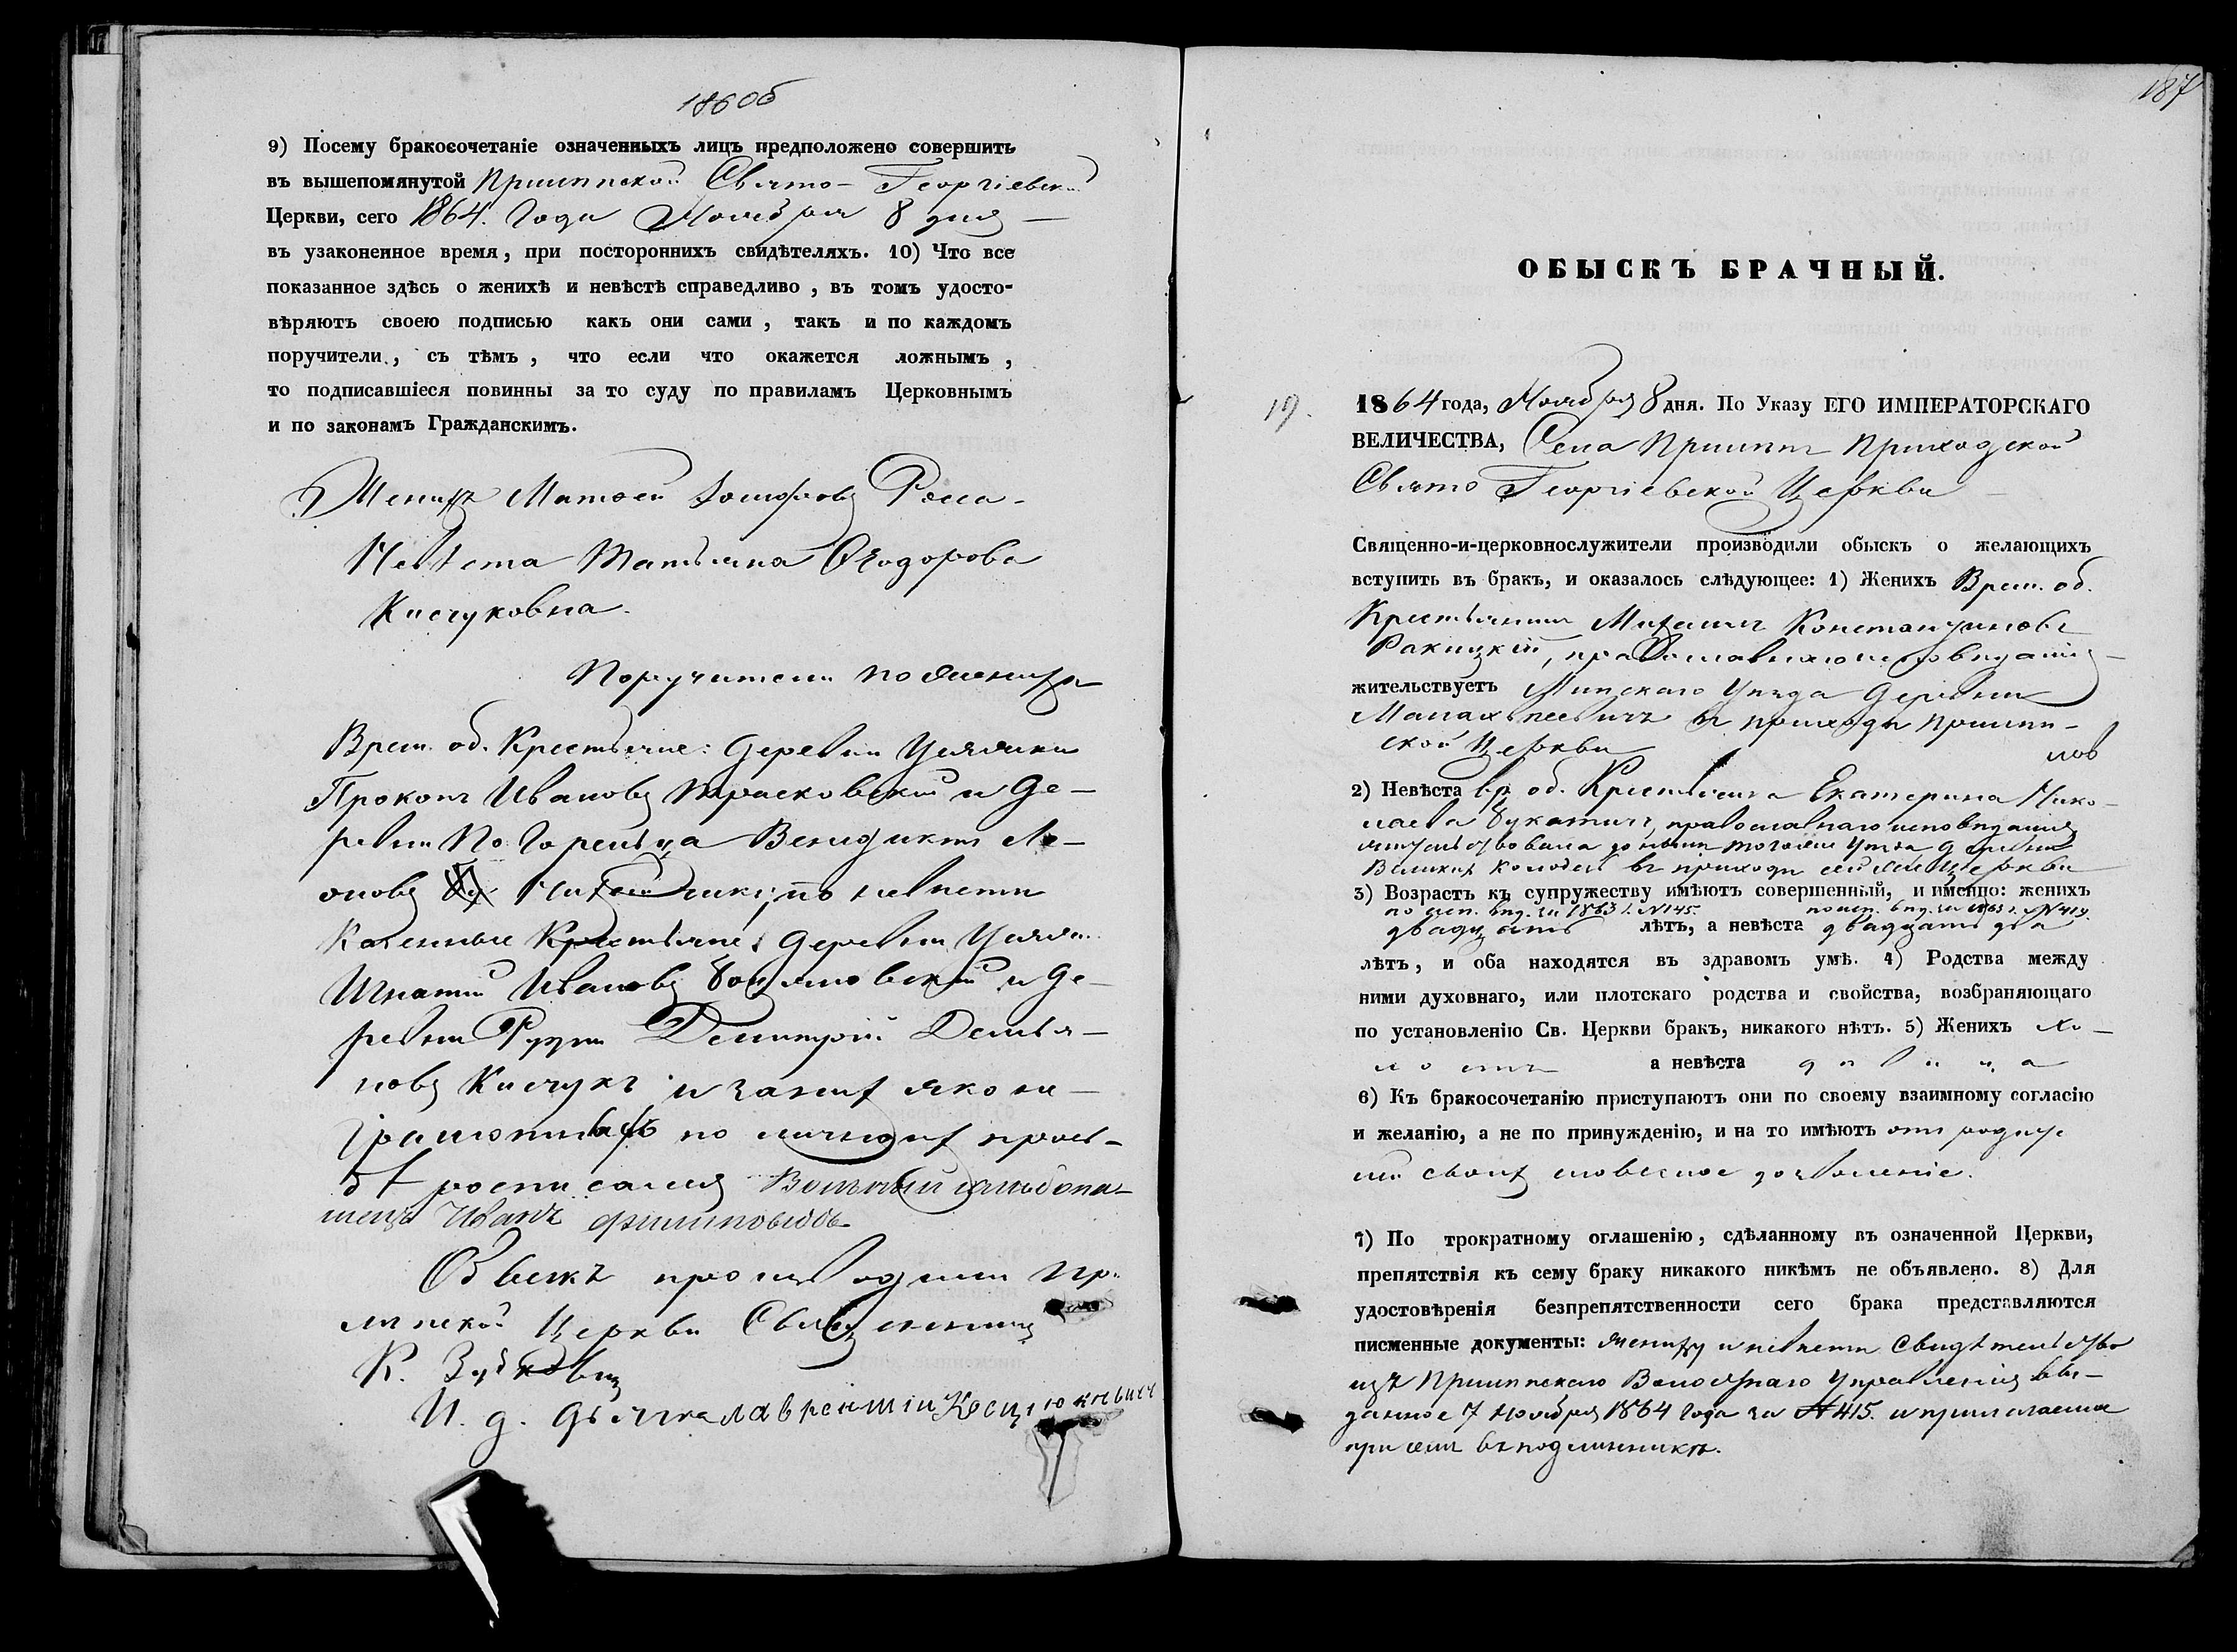 186 об
9) Посему бракосочетаніе означенныхъ лицъ предположено совершить
въ вышепомянутой Свято-Георгіевской
Церкви, сего 1864. Года Ноября 8 дня —
въ узаконенное время, при постороннихъ свидѣтеляхъ. 10) Что все
показанное здѣсь о женихѣ и невѣстѣ справедливо, въ томъ удосто-
вѣряютъ своею подписью какъ они сами, такъ и по каждомъ
поручители, съ тѣмъ, что если что окажется ложнымъ,
то подписавшіеся повинны за то суду по правиламъ Церковнымъ
и по законамъ Гражданскимъ.
Женихъ Матвей
Невѣста Татьяна Ѳеодорова
Кисчуковна.
Поручители по женихѣ
Врем. об. Крестьяне: деревни
Прокопъ Ивановъ и де-
ревни Погорельца Венедиктъ Ле-
оновъ по невѣсти
Казенные Крестьяне деревни
Игнатій Ивановъ и де-
ревни Рудни Демьян-
новъ Кисчукъ и за нихъ яко не-
грамотныхъ по личной ихъ прозь-
бѣ росписался Вольный
Иванъ Филиповъ
Обыскъ производили При-
липской Церкви Священникъ
К.
И. д. дьячка Лаврентій Косцюкевичъ
187
ОБЫСКЪ БРАЧНЫЙ.
19.
1864 года, Ноября 8 дня. По Указу ЕГО ИМПЕРАТОРСКАГО
ВЕЛИЧЕСТВА, Села Приходской
Свято Георгіевской Церкви —
Священно-и-церковнослужители производили обыскъ о желающихъ
вступить въ бракъ, и оказалось слѣдующее: 1) Женихъ Врем. об.
Крестьянинъ Михаилъ Константиновъ
Ракицкій, православнаго исповѣданія —
жительствуетъ Минскаго Уѣзда деревни
въ приходѣ
ской Церкви
2) Невѣста вр. об. Крестьянка Екатерина Нико-
лаева Букатичъ, православнаго исповѣданія
жительствовала до нынѣ того же Уѣзда деревни
Великихъ Колодезь въ приходѣ сей же Церкви
3) Возрастъ къ супружеству имѣютъ совершенный, и именно: женихъ
по исп. вѣд. за 1863 г. №145. по исп. вѣд. за 1863 г. №419.
двадцать лѣтъ, а невѣста двадцать два
лѣтъ, и оба находятся въ здравомъ умѣ. 4) Родства между
ними духовнаго, или плотскаго родства и свойства, возбраняющаго
по установленію Св. Церкви бракъ, никакого нѣтъ. 5) Женихъ хо-
лостъ а невѣста дѣвица
6) Къ бракосочетанію приступаютъ они по своему взаимному согласію
и желанію, а не по принужденію, и на то имѣютъ отъ родите-
лей своихъ словесное дозволеніе.
7) По трократному оглашенію, сдѣланному въ означенной Церкви,
препятствія къ сему браку никакого никѣмъ не объявлено. 8) Для
удостовѣренія безпрепятственности сего брака представляются
писменные документы: жениху и невѣсти Свидѣтельство
изъ Волостнаго Управленія вы-
данное 7 Ноября 1864 Года за №415. и прилагается
при семъ въ подлинникѣ.